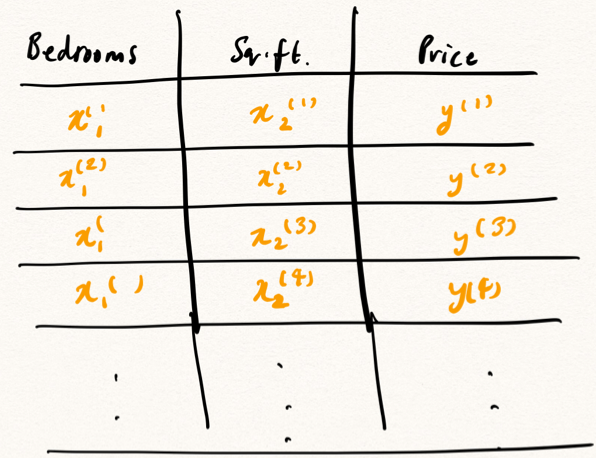 Bedrooms Sq.ft. Price
x₁⁽' x₂⁽¹⁾ y⁽¹⁾
x₁⁽²⁾ x₂⁽²⁾ y⁽²⁾
x₁⁽ x₂⁽³⁾ y⁽³⁾
x₁⁽ ⁾ x₂⁽⁴⁾ y(4)